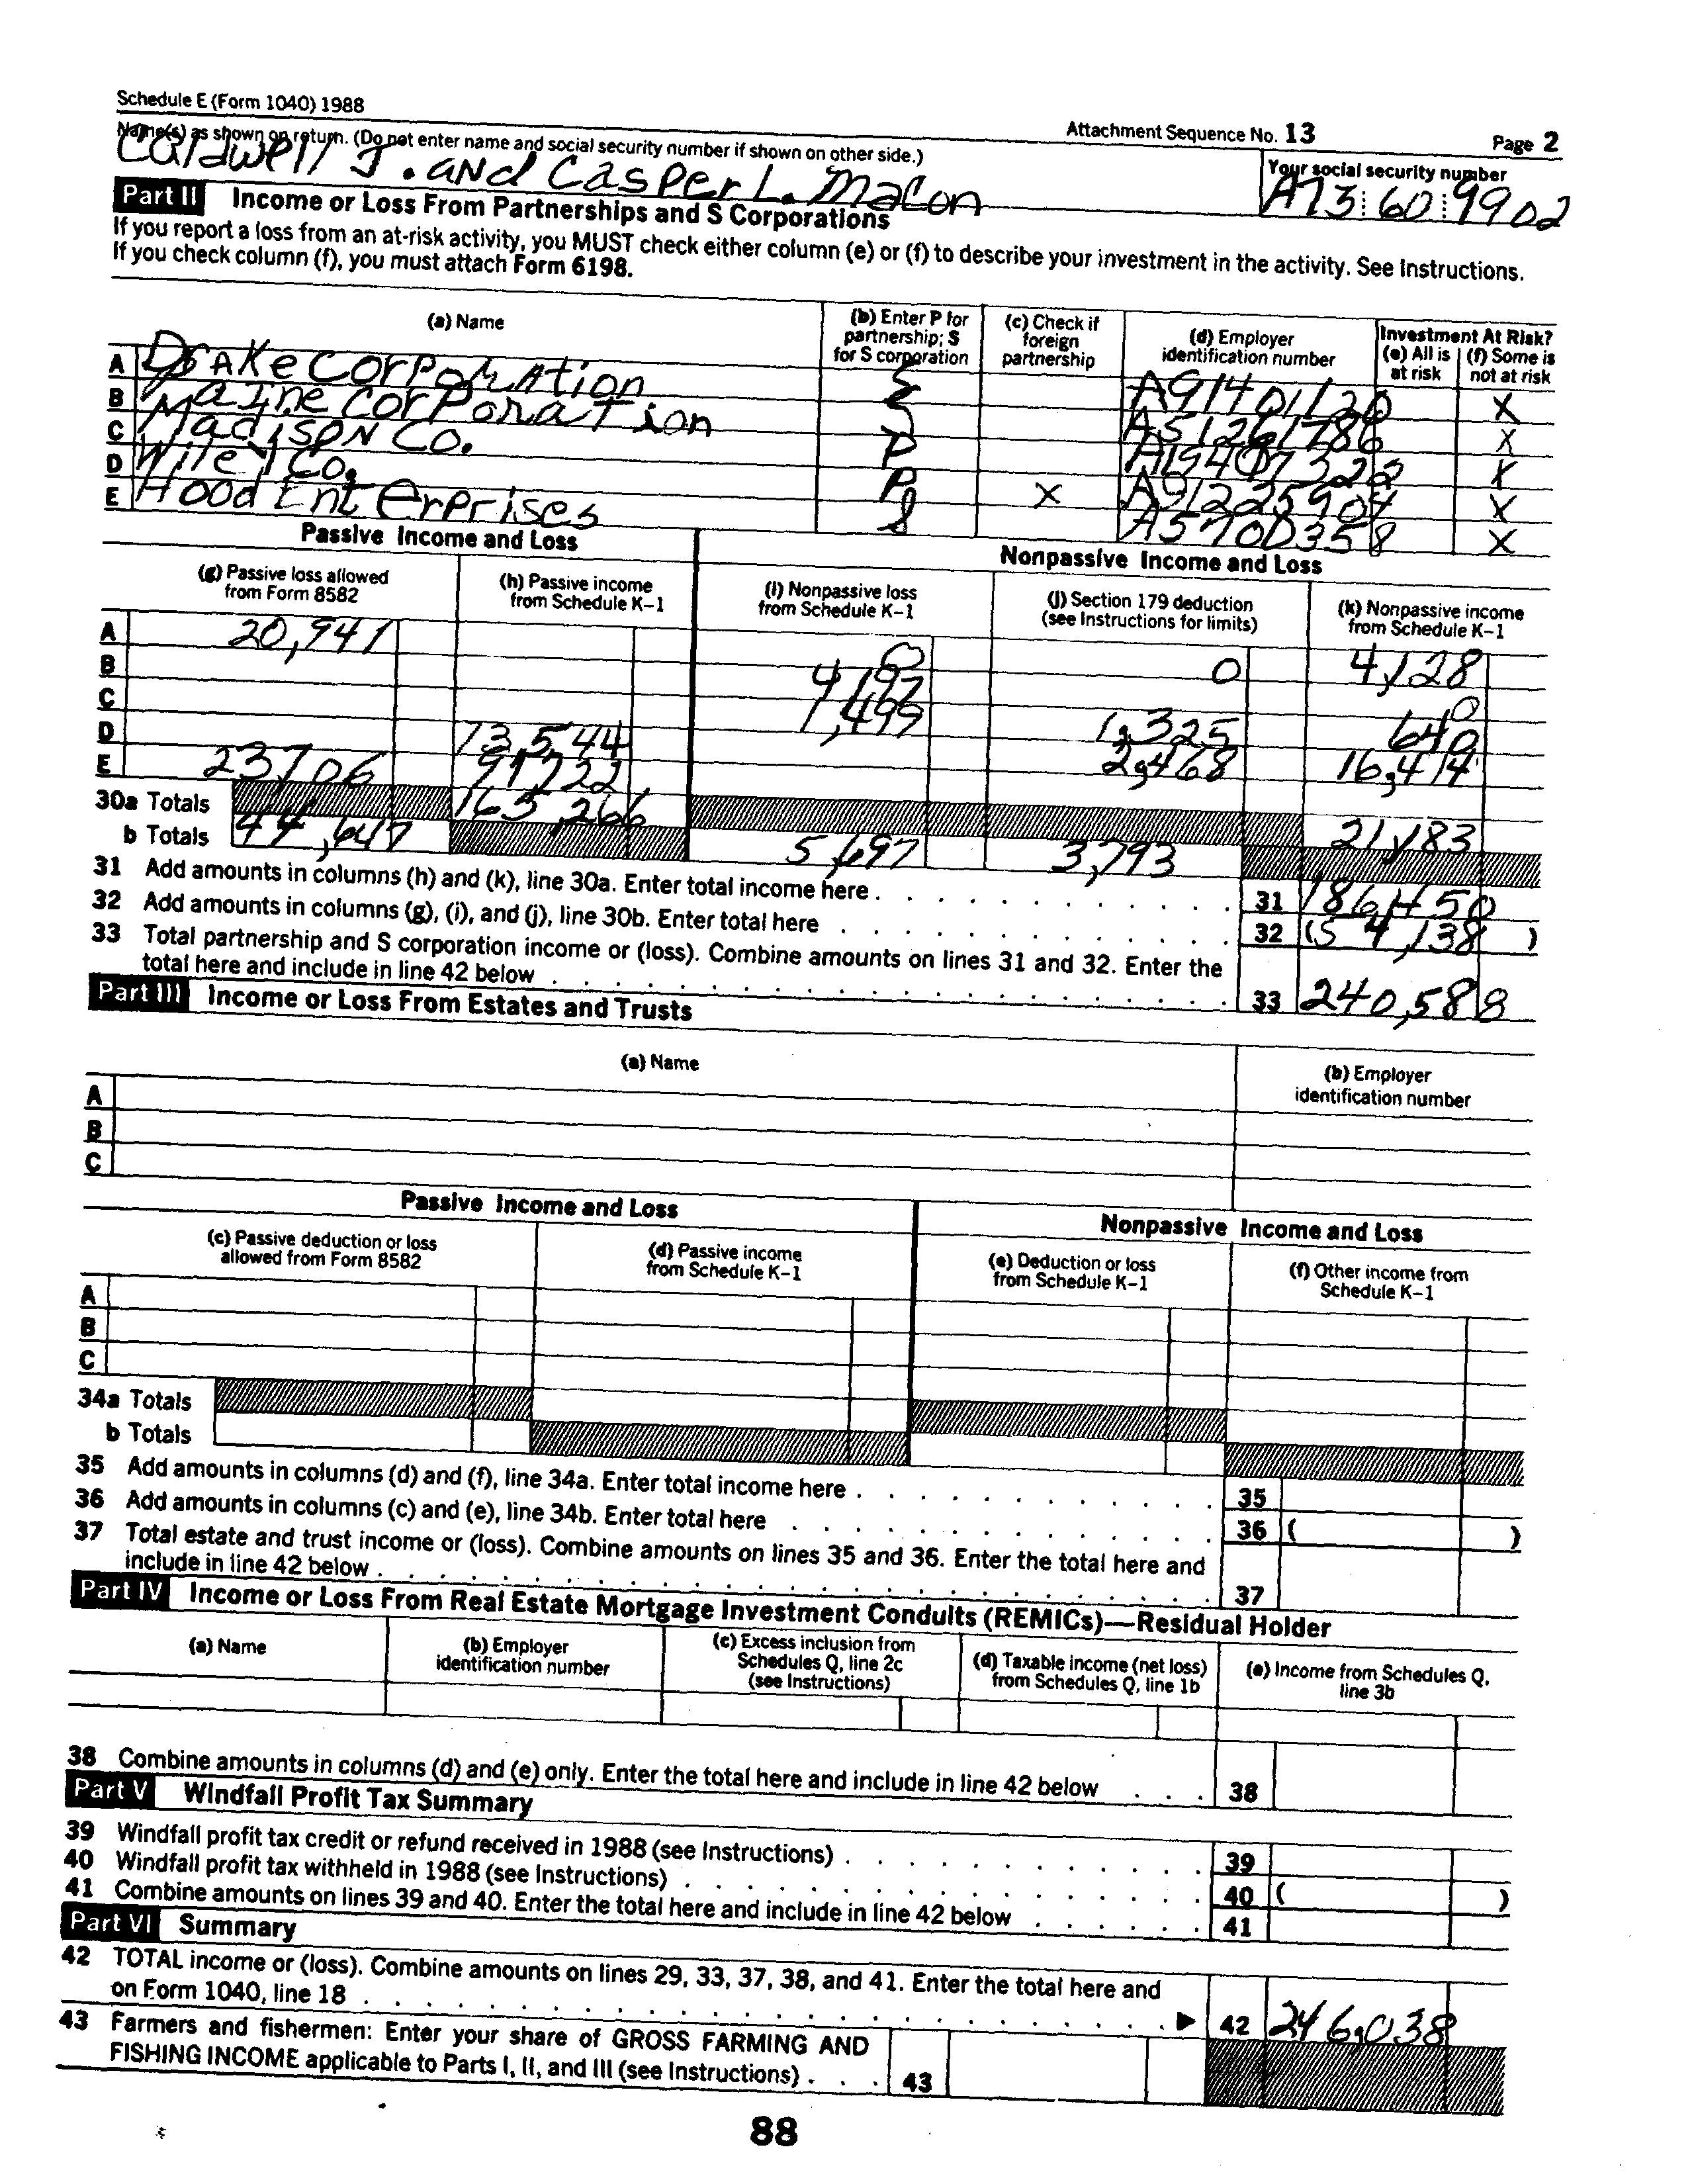 Schedule E (Form 1040) 1988
Attachment Sequence No. 13 Page 2
Name(s) as shown on return. (Do not enter name and social security number if shown on other side.)
Your social security number
Caldwell J. and Casper L. Macon
A73 60 9902
Part II Income or Loss From Partnerships and S Corporations
If you report a loss from an at-risk activity, you MUST check either column (e) or (f) to describe your investment in the activity. See Instructions.
If you check column (f), you must attach Form 6198.
(a) Name
(b) Enter P for partnership; S for S corporation
(c) Check if foreign partnership
(d) Employer identification number
Investment At Risk?
(e) All is at risk
(f) Some is not at risk
A Drake Corporation S A91401120 X
B Maine Corporation S A51261786 X
C Madison Co. P X
D Wiley Co. P X A91225904 X
E Hood Enterprises S A5700358 X
Passive Income and Loss
Nonpassive Income and Loss
(g) Passive loss allowed from Form 8582
(h) Passive income from Schedule K–1
(i) Nonpassive loss from Schedule K–1
(j) Section 179 deduction (see Instructions for limits)
(k) Nonpassive income from Schedule K–1
A 20,941 0 0 4,128
B 4,197 0
C 1,499 1,325 640
D 73,544 2,468 16,414
E 23,706 91,722
30a Totals 165,266 21,183
b Totals 44,647 5,697 3,793
31 Add amounts in columns (h) and (k), line 30a. Enter total income here 31 186,450
32 Add amounts in columns (g), (i), and (j), line 30b. Enter total here 32 (54,138)
33 Total partnership and S corporation income or (loss). Combine amounts on lines 31 and 32. Enter the
total here and include in line 42 below 33 240,588
Part III Income or Loss From Estates and Trusts
(a) Name
(b) Employer identification number
A
B
C
Passive Income and Loss
Nonpassive Income and Loss
(c) Passive deduction or loss allowed from Form 8582
(d) Passive income from Schedule K–1
(e) Deduction or loss from Schedule K–1
(f) Other income from Schedule K–1
A
B
C
34a Totals
b Totals
35 Add amounts in columns (d) and (f), line 34a. Enter total income here 35
36 Add amounts in columns (c) and (e), line 34b. Enter total here 36 ( )
37 Total estate and trust income or (loss). Combine amounts on lines 35 and 36. Enter the total here and
include in line 42 below 37
Part IV Income or Loss From Real Estate Mortgage Investment Conduits (REMICs)—Residual Holder
(a) Name
(b) Employer identification number
(c) Excess inclusion from Schedules Q, line 2c (see Instructions)
(d) Taxable income (net loss) from Schedules Q, line 1b
(e) Income from Schedules Q, line 3b
38 Combine amounts in columns (d) and (e) only. Enter the total here and include in line 42 below 38
Part V Windfall Profit Tax Summary
39 Windfall profit tax credit or refund received in 1988 (see Instructions) 39
40 Windfall profit tax withheld in 1988 (see Instructions) 40 ( )
41 Combine amounts on lines 39 and 40. Enter the total here and include in line 42 below 41
Part VI Summary
42 TOTAL income or (loss). Combine amounts on lines 29, 33, 37, 38, and 41. Enter the total here and
on Form 1040, line 18 42 246,038
43 Farmers and fishermen: Enter your share of GROSS FARMING AND
FISHING INCOME applicable to Parts I, II, and III (see Instructions) 43
88